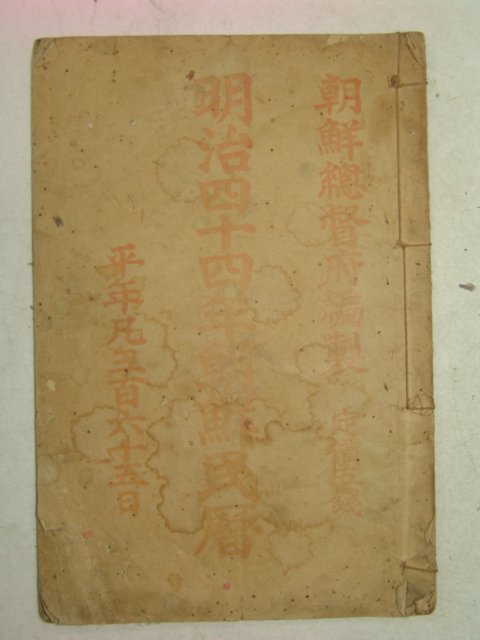 朝鮮總督府編製 定價五錢
明治四十四年朝鮮民曆
平年凡三百六十五日